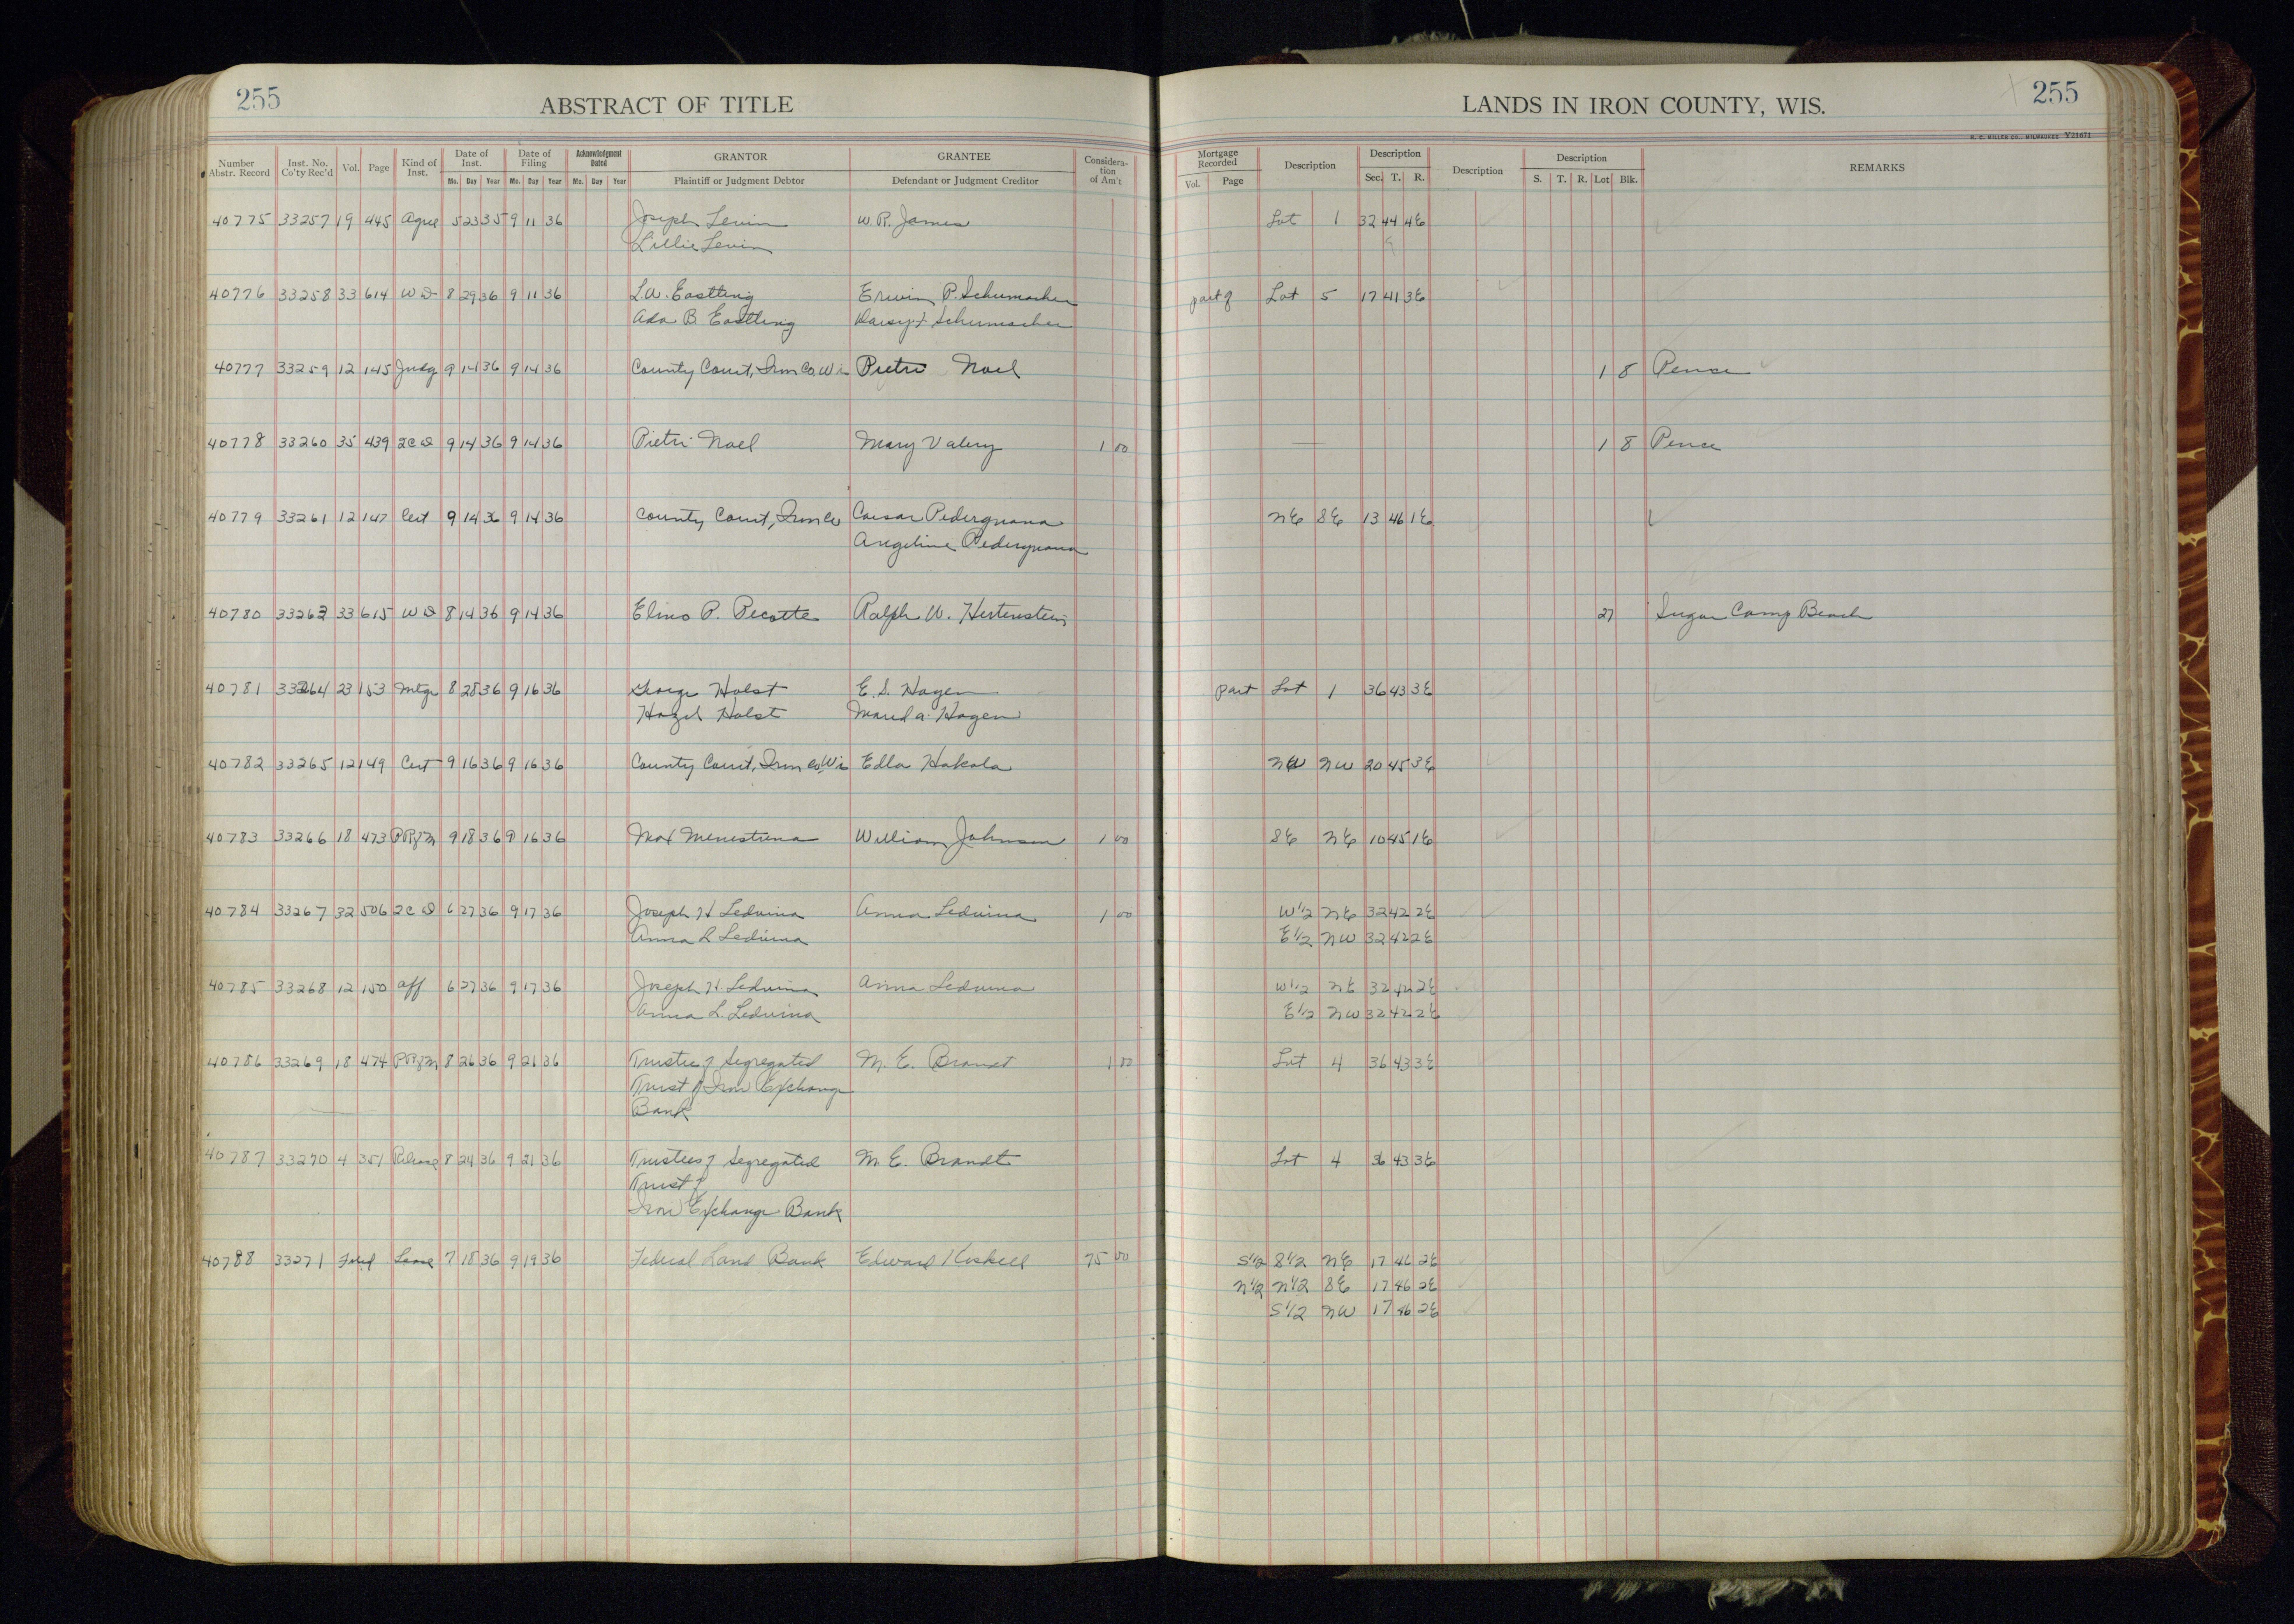 255 ABSTRACT OF TITLE
LANDS IN IRON COUNTY, WIS. 255
H. C. MILLER CO., MILWAUKEE Y21671
Number Abstr. Record Inst. No. Co'ty Rec'd Vol. Page Kind of Inst. Date of Inst. Mo. Day Year Date of Filing Mo. Day Year Acknowledgment Dated Mo. Day Year GRANTOR Plaintiff or Judgment Debtor GRANTEE Defendant or Judgment Creditor Considera-tion of Am't Mortgage Recorded Vol. Page Description Description Sec. T. R. Description Description S. T. R. Lot Blk. REMARKS
40775 33257 19 445 Agree 5 23 35 9 11 36 Joseph Levin W. R. James Lot 1 32 44 4E
Lillie Levin
40776 33258 33 614 WD 8 29 36 9 11 36 L.W. Eastling Erwin P. Schumacher part of Lot 5 17 41 3E
Ada B. Eastling Daisy F Schumacher
40777 33259 12 145 Judg 9 14 36 9 14 36 County Court, Iron Co, Wis Pietri Noel 1 8 Pence
40778 33260 35 439 2CD 9 14 36 9 14 36 Pietri Noel Mary Valery 1 00 1 8 Pence
40779 33261 12 147 Cert 9 14 36 9 14 36 County Court, Iron Co Caesar Pedergnana NE SE 13 46 1E
Angeline Pedergnana
40780 33263 33 615 WD 8 14 36 9 14 36 Elmo P. Pecotte Ralph W. Hertenstein 27 Sugar Camp Beach
40781 33264 23 153 Mtge 8 28 36 9 16 36 George Holst E. S. Hagen part Lot 1 36 43 3E
Hazel Holst Maud A. Hagen
40782 33265 12 149 Cert 9 16 36 9 16 36 County Court, Iron Co, Wis Edla Hakala NW NW 20 45 3E
40783 33266 18 473 PRfM 9 18 36 9 16 36 Max Menestrina William Johnson 1 00 SE NE 10 45 1E
40784 33267 32 506 2CD 6 27 36 9 17 36 Joseph H Ledvina Anna Ledvina 1 00 W1/2 NE 32 42 2E
Anna L Ledvina E1/2 NW 32 42 2E
40785 33268 12 150 Aff 6 27 36 9 17 36 Joseph H. Ledvina Anna Ledvina W1/2 NE 32 42 2E
Anna L. Ledvina E1/2 NW 32 42 2E
40786 33269 18 474 PRfM 8 26 36 9 21 36 Trustees of Segregated M. E. Brandt 1 00 Lot 4 36 43 3E
Trust of Iron Exchange
Bank
40787 33270 4 351 Release 8 24 36 9 21 36 Trustees of Segregated M. E. Brandt Lot 4 36 43 3E
Trust of
Iron Exchange Bank
40788 33271 Filed Lease 7 18 36 9 19 36 Federal Land Bank Edward Koskell 75 00 S1/2 S1/2 NE 17 46 2E
N1/2 N1/2 SE 17 46 2E
S1/2 NW 17 46 2E